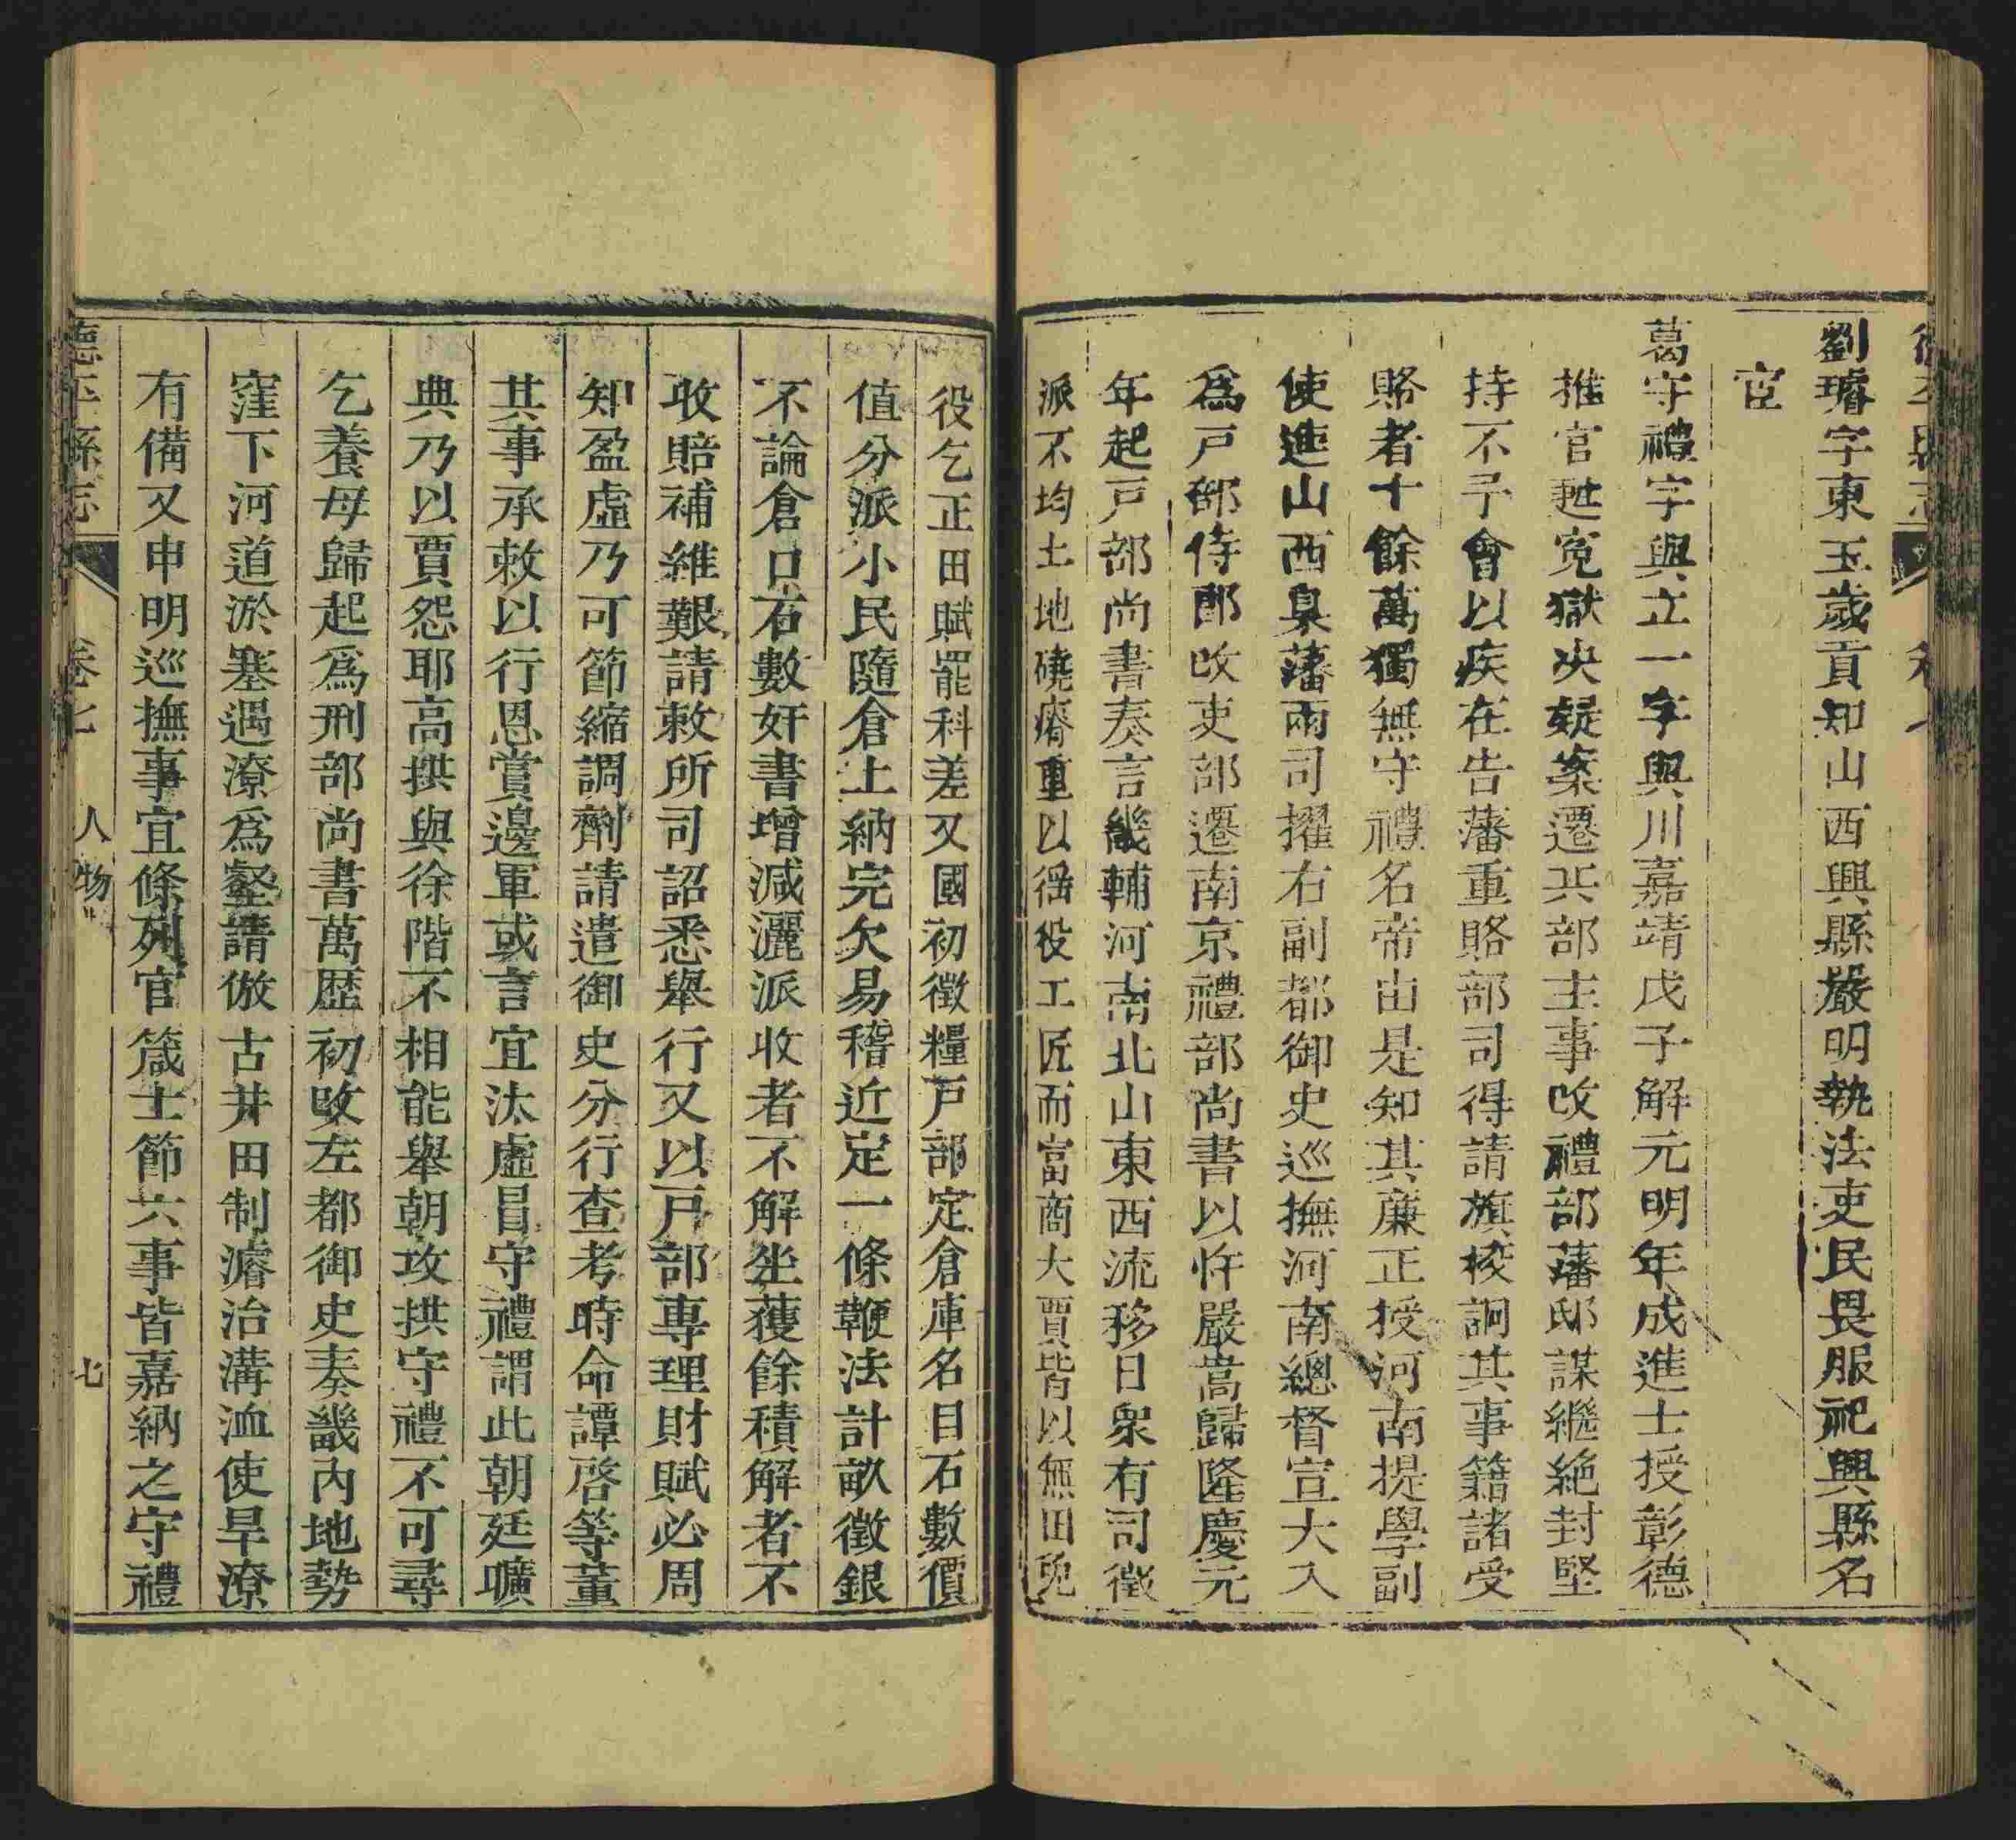 劉璿字東玉歲貢知山西興縣嚴明執法吏民畏服祀興縣名
宦
葛守禮字與立一字與川嘉靖戊子解元明年成進士授彰德
推官𨑳冤獄决疑案遷兵部主事改禮部藩邸謀繼絶封堅
持不予會以疾在告藩重賂部司得請旗校詗其事籍諸受
賂者十餘萬獨無守禮名帝由是知其廉正授河南提學副
使進山西臬藩兩司擢右副都御史巡撫河南總督宣大入
爲戸部侍郎改吏部遷南京禮部尚書以忤嚴嵩歸隆慶元
年起戸部尚書奏言畿輔河南北山東西流移日衆有司徵
派不均土地磽瘠重以徭役工匠而富商大賈皆以無田免
役乞正田賦罷科差又國初徵糧戸部定倉庫名目石數價
值分派小民隨倉上納完欠易稽近定一條鞭法計畝徵銀
不論倉口石數奸書增減灑派收者不解坐獲餘積解者不
收賠補維艱請敕所司詔悉舉行又以戸部專理財賦必周
知盈虛乃可節縮調劑請遣御史分行查考時命譚啓等董
其事承敕以行恩賞邊軍或言宜汰虛冒守禮謂此朝廷曠
典乃以賈怨耶高拱與徐階不相能舉朝攻拱守禮不可尋
乞養母歸起爲刑部尚書萬歷初改左都御史奏畿內地勢
窪下河道淤塞遇潦爲壑請倣古井田制濬治溝洫使旱潦
有備又申明巡撫事宜條列官箴士節六事皆嘉納之守禮
德平縣志 卷七 人物 七